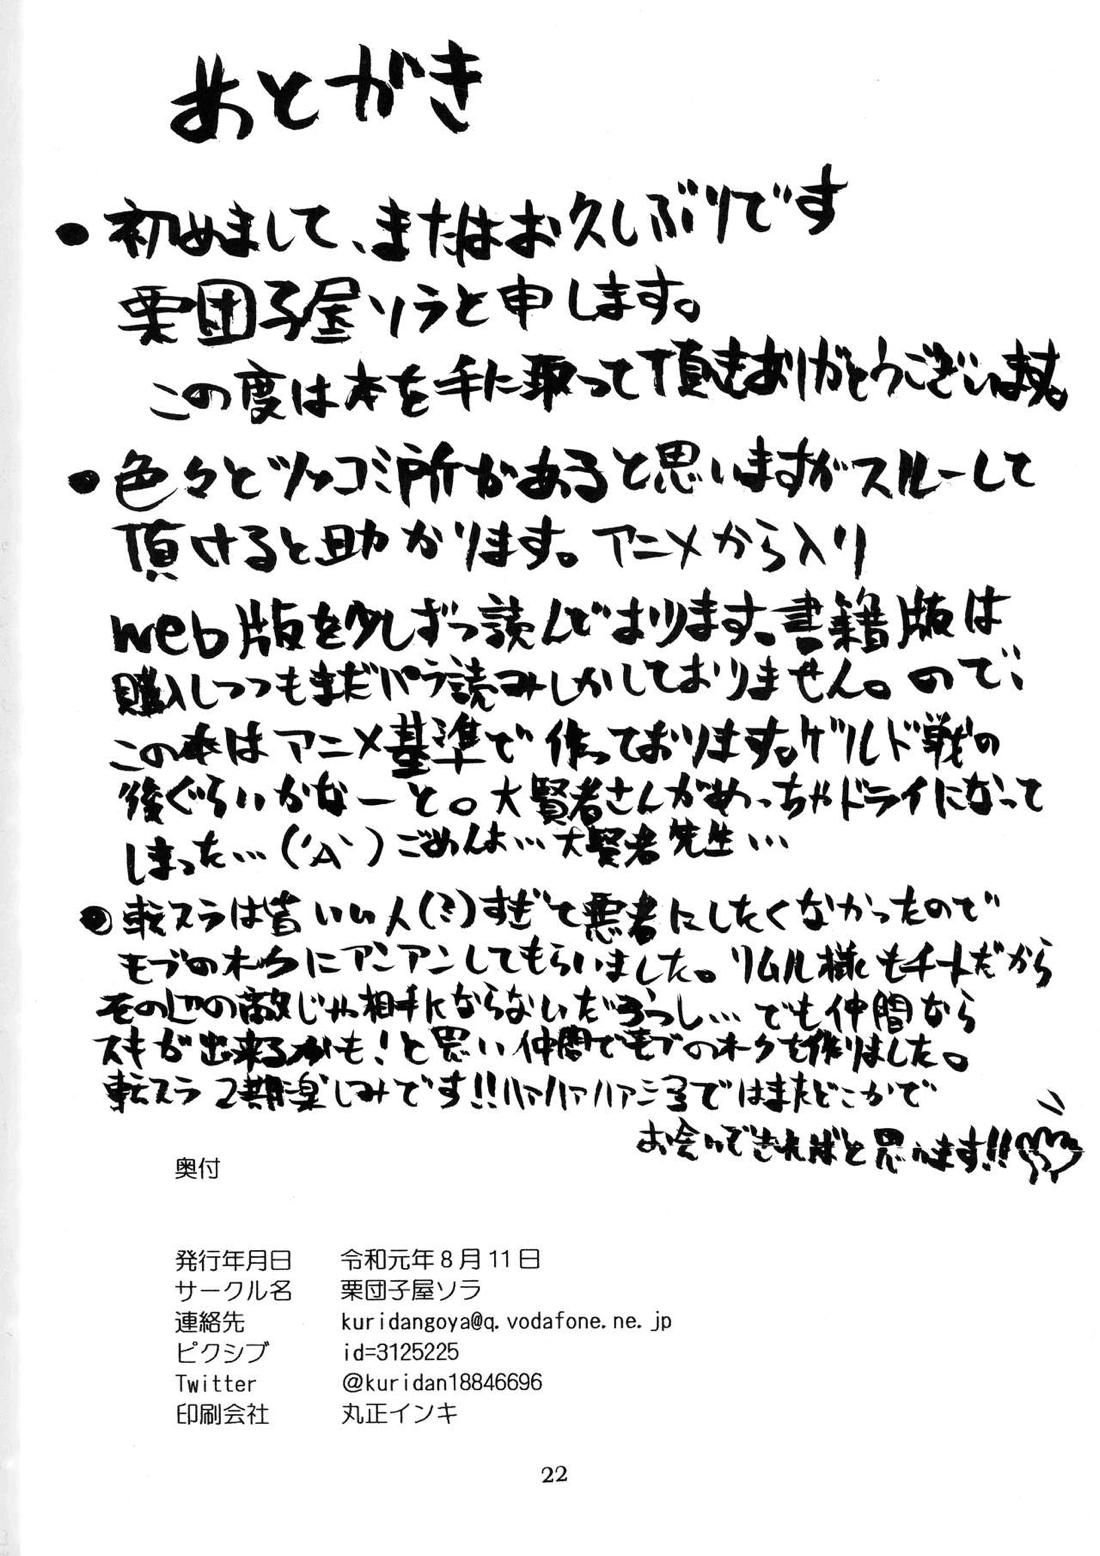 あとがき
●初めまして、またはお久しぶりです
栗団子屋ソラと申します。
この度は本を手に取って頂きありがとうございます。
●色々とツッコミ所があると思いますがスルーして
頂けると助かります。アニメから入り
web版を少しずつ読んでおります。書籍版は
購入しつつもまだパラ読みしかしておりません。ので、
この本はアニメ基準で作っております。ゲルド戦の
後ぐらいかなーと。大賢者さんがめっちゃドライになって
しまった…('A`)ごめんよ…大賢者先生…
●転スラは皆いい人(?)すぎて悪者にしたくなかったので
モブのオークにアンアンしてもらいました。リムル様もチートだから
その辺の敵じゃ相手にならないだろうし…でも仲間なら
スキが出来るかも!と思い仲間でモブのオークを作りました。
転スラ2期楽しみです!!ハァハァハァ ではまたどこかで
お会いできればと思います!!
奥付
発行年月日 令和元年8月11日
サークル名 栗団子屋ソラ
連絡先 kuridangoya@q.vodafone.ne.jp
ピクシブ id=3125225
Twitter @kuridan18846696
印刷会社 丸正インキ
22